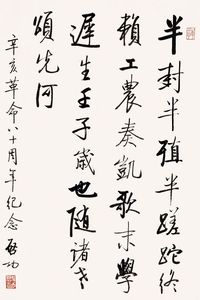 半封半殖半蹉跎终
赖工農奏凱歌末學
遲生壬子歲也随诸老
頌先河
辛亥革命八十周年纪念 啓功